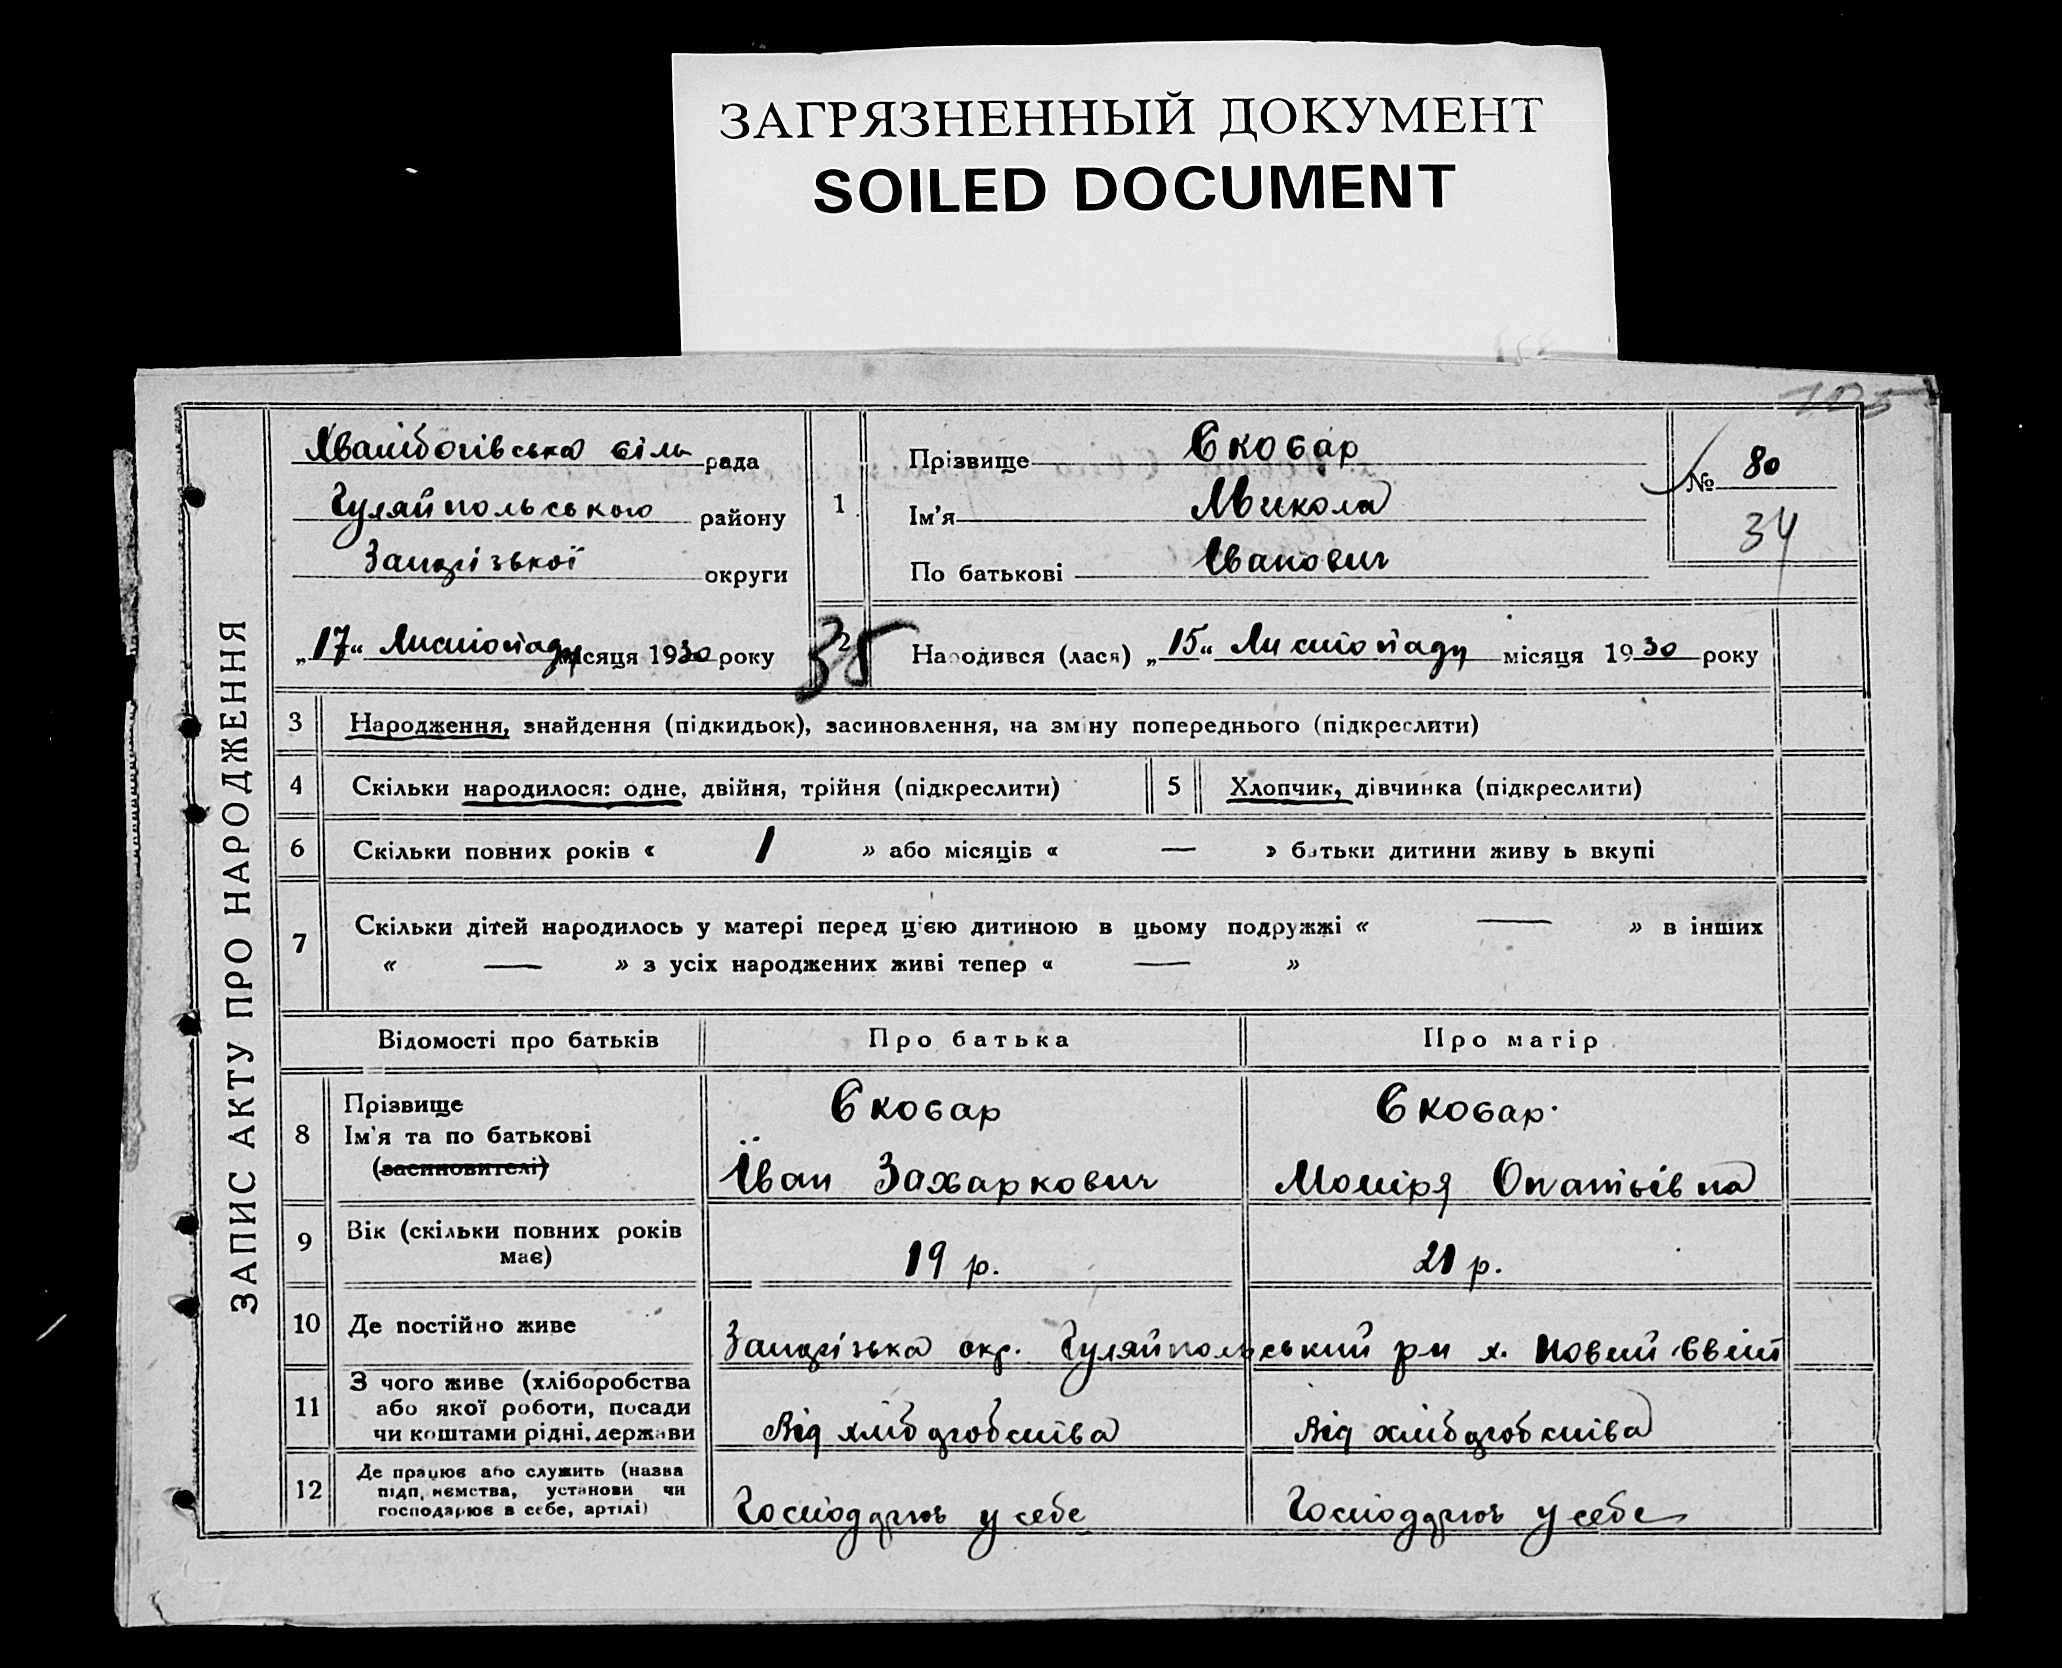 ЗАГРЯЗНЕННЫЙ ДОКУМЕНТ
SOILED DOCUMENT
105
ЗАПИС АКТУ ПРО НАРОДЖЕННЯ
Хвалібогівська сіль рада
Гуляйпольського району
Запорізької округи
„17“ Листопаду місяця 1930 року
1
Прізвище Сковар
Ім'я Микола
По батькові Іванович
№ 80
34
35
2
Народився (лася) „15“ Листопаду місяця 1930 року
3 Народження, знайдення (підкидьок), засиновлення, на зміну попереднього (підкреслити)
4 Скільки народилося: одне, двійня, трійня (підкреслити)
5 Хлопчик, дівчинка (підкреслити)
6 Скільки повних років « 1 » або місяців « — » батьки дитини живуть вкупі
7 Скільки дітей народилось у матері перед цією дитиною в цьому подружжі « — » в інших
« — » з усіх народжених живі тепер « — »
Відомості про батьків Про батька Про матір
8 Прізвище
Ім'я та по батькові
(засиновителі)
Сковар
Іван Захаркович
Сковар
9 Вік (скільки повних років
має)
19 р.
21 р.
10 Де постійно живе
Запорізька окр. Гуляйпольський рн х. Новий
11 З чого живе (хліборобства
або якої роботи, посади
чи коштами рідні, держави
Від хліборобства
Від хліборобства
12 Де працює або служить (назва
підприємства, установи чи
господарює в себе, артілі)
Господарює у себе
Господарює у себе